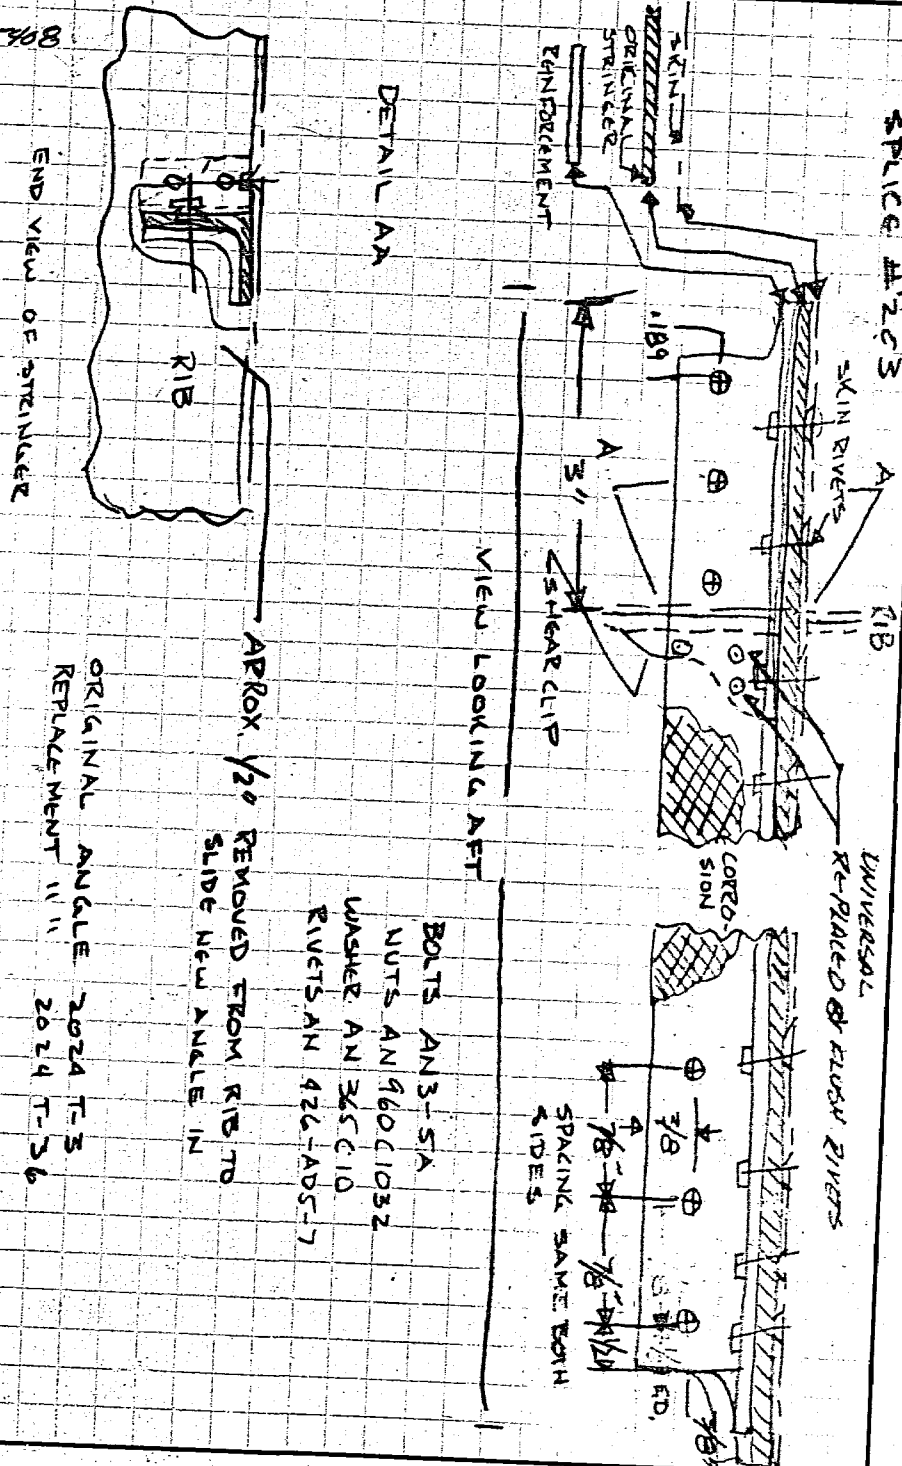 SPLICE #2C3
SKIN
ORIGINAL
STRINGER
REINFORCEMENT
SKIN RIVETS
A
RIB
UNIVERSAL
REPLACED BY FLUSH RIVETS
.189
A
3"
SHEAR CLIP
CORRO-
SION
3/8
7/8"
7/8"
1/2"
3/8"
SPACING SAME BOTH
SIDES
VIEW LOOKING AFT
DETAIL AA
BOLTS AN3-5A
NUTS AN960C1032
WASHER AN365C10
RIVETS AN 426-AD5-7
RIB
APROX 1/20 REMOVED FROM RIB TO
SLIDE NEW ANGLE IN
END VIEW OF STRINGER
ORIGINAL ANGLE 2024 T-3
REPLACEMENT " " 2024 T-36